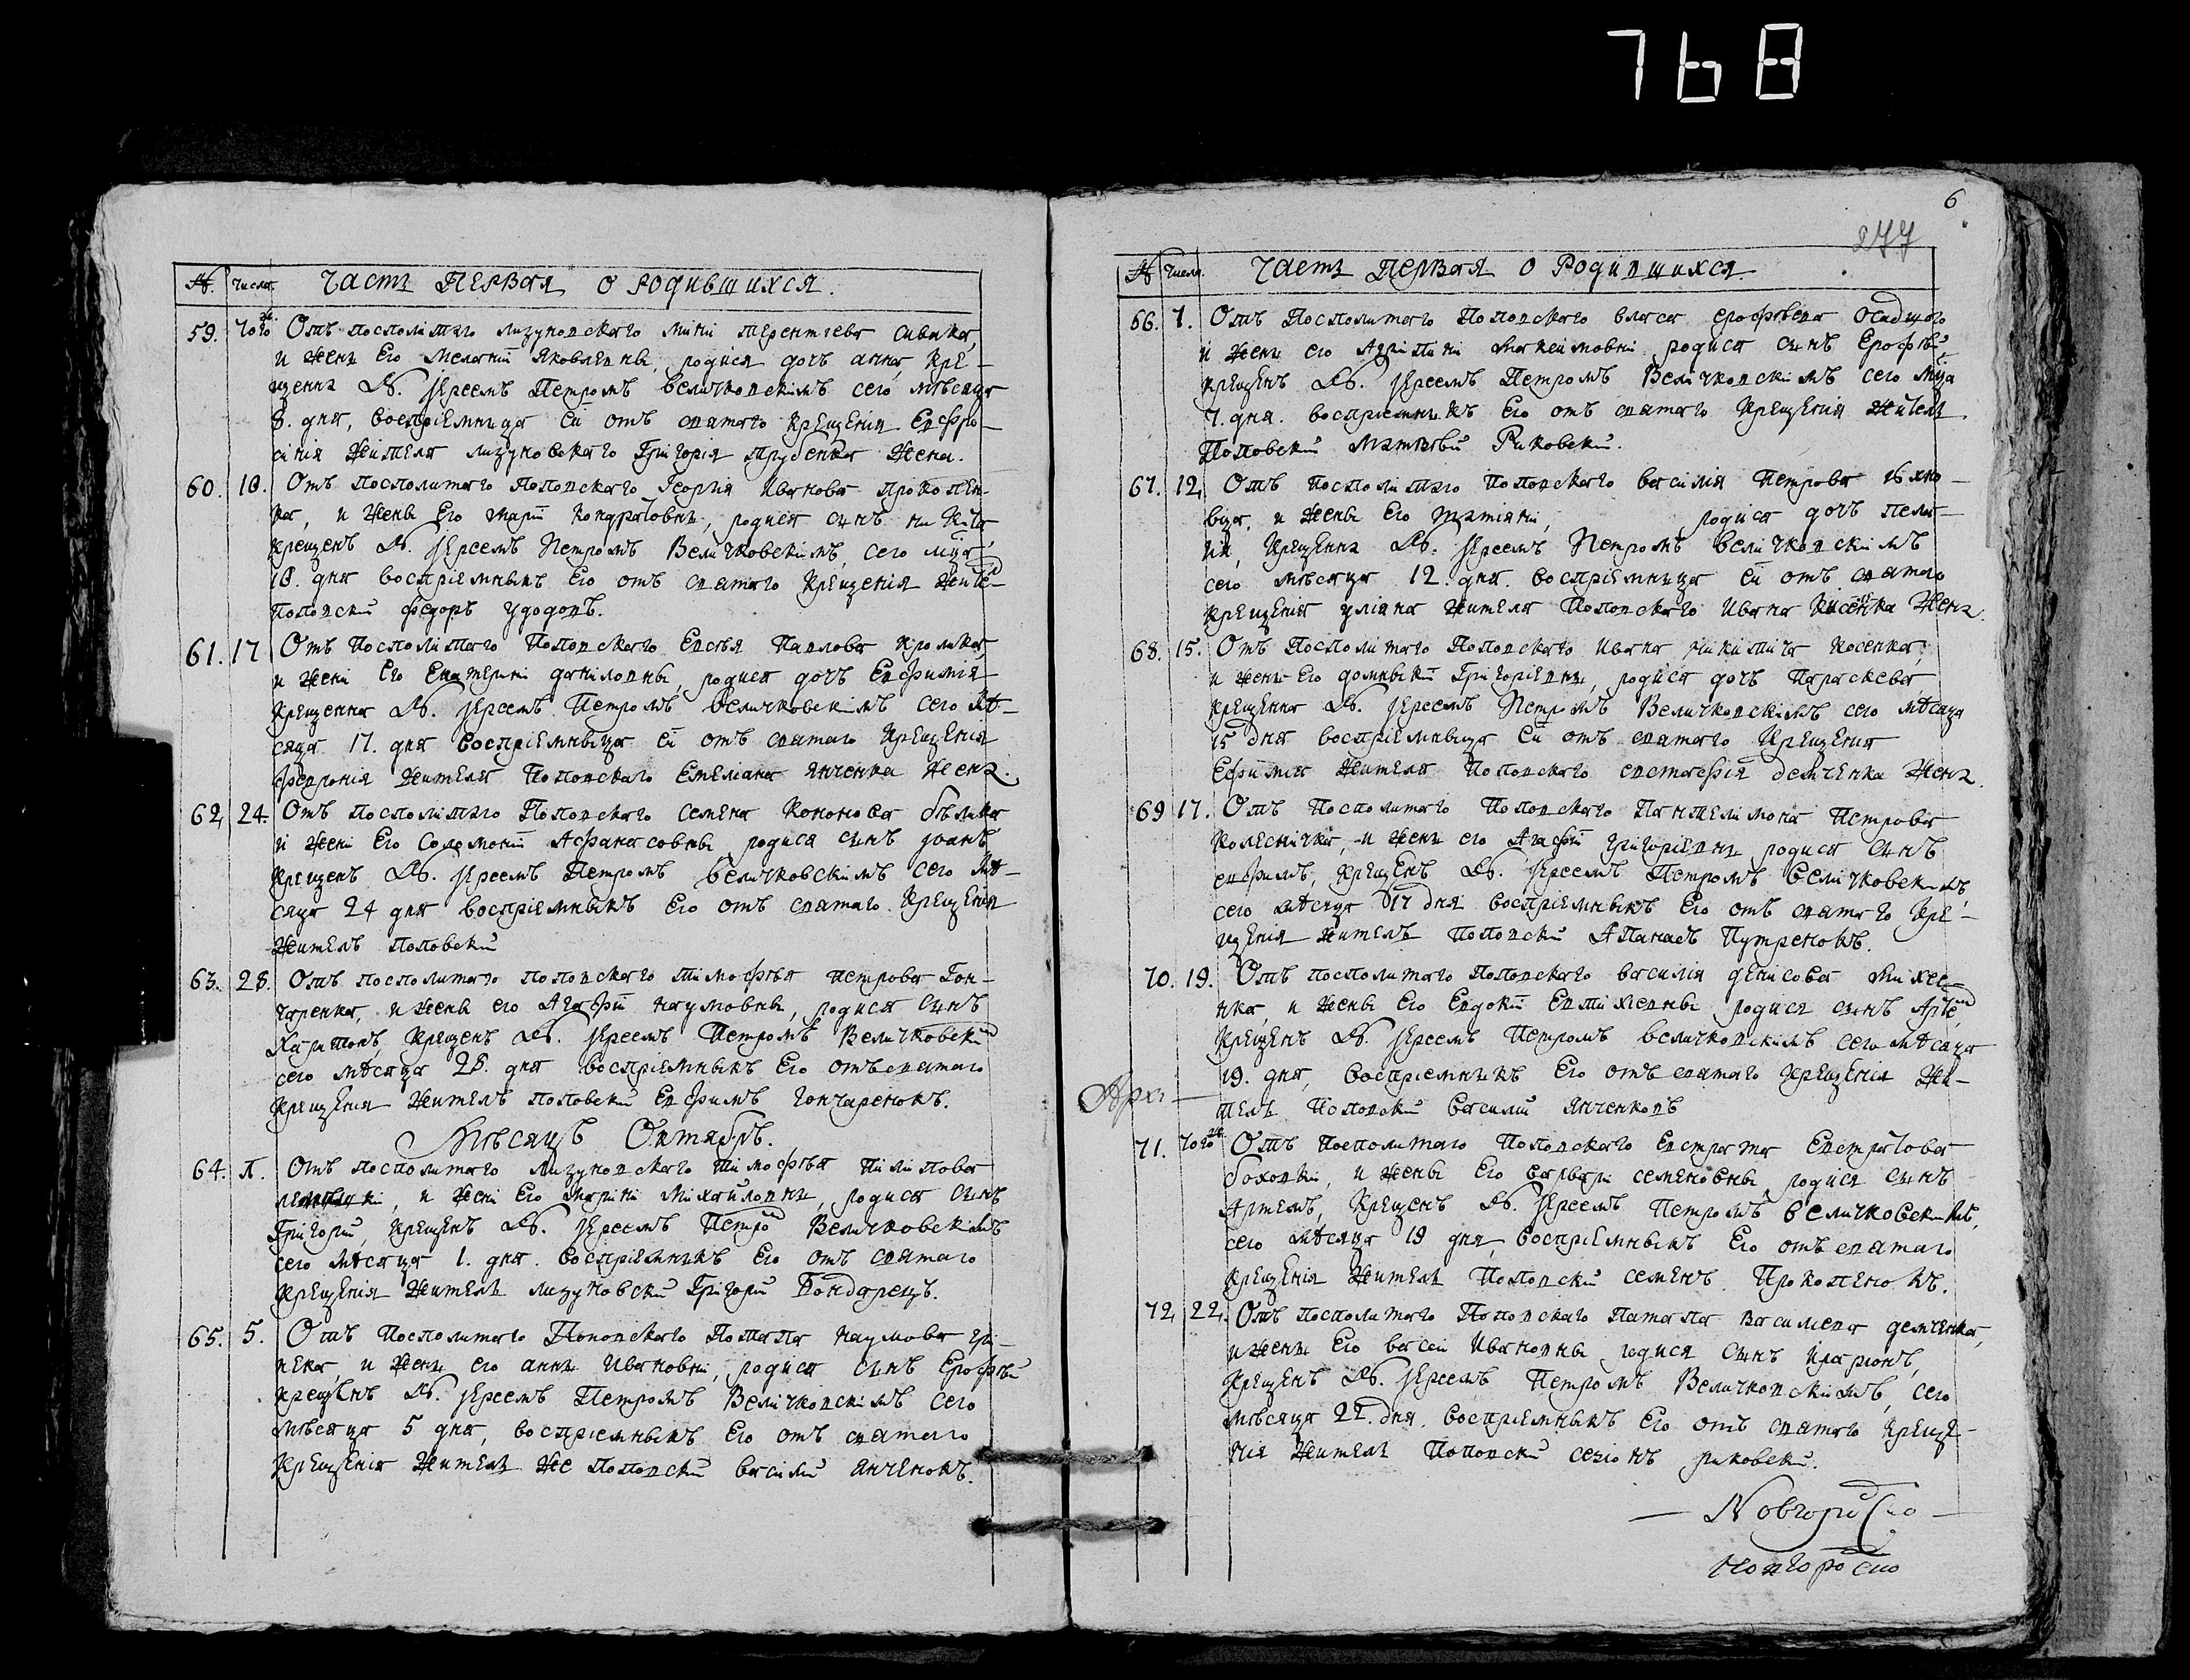 768
№. Числа Часть Первая о Родившихся.
59. того ж. Отъ посполитаго лизуновского мины терентіева сивака,
и жены Его Меланіи Яковлевны, родися дочь анна, кре-
щенна Іереемъ Петромъ Величковскімъ сего мѣсяца
8. дня, восприемница Ей отъ святаго крещенія Евфро-
синія жителя лизуновского Григорія трубенка жена.
60. 10. Отъ посполитаго Поповского Георгія Иванова прокопен-
ка, и жены Его маріи Кондратовны, родися сынъ никита
крещенъ Іереемъ Петромъ Величковскімъ, сего мца
10. дня восприемникъ Его отъ святаго крещенія жите
поповски федоръ удодовъ.
61. 17 Отъ Посполитаго Поповского Евсѣя Павлова Кролика
и жени Его Екатерині даніловны, родися дочь Евфимія
крещенна Іереемъ Петромъ Величковскімъ сего мѣ-
сяца 17. дня восприемныца Ей отъ святаго крещенія
феврония жителя Поповскаго Емеліана янченка жена.
62, 24. Отъ посполитаго Поповского семена Кононова бѣлика
и жени Его Соломоніи Афанасовны родися сынъ іоанъ
крещенъ Іереемъ Петромъ Величковскімъ сего мѣ-
сяца 24 дня восприемныкъ Его отъ святаго крещенія
житель поповский
63. 28. Отъ посполитаго поповского тимофѣя петрова Гон-
чаренка, и жены его Агафіи наумовны, родися сынъ
Харитонъ, крещенъ Іереемъ Петромъ Величковски
сего мѣсяца 28. дня восприемныкъ Его отъ святаго
крещения житель поповский Евфимъ гончаренокъ.
Мѣсяцъ Октябрь.
64. 1. Отъ посполитаго Лизуновского тимофѣя пилипова
и жени Его марини Михайловны, родися сынъ
Григорий, крещенъ Іереемъ Петро Величковскімъ
сего мѣсяца 1. дня. восприемникъ Его отъ святаго
крещения житель лизуновский Григорий Бондарецъ.
65. 5. Отъ Посполитаго Поповского Потапа наумова гри-
нека, и жены его анны Ивановни, родися сынъ Ерофѣй
крещенъ Іереемъ Петромъ Величковскімъ сего
мѣсяца 5 дня, восприемныкъ Его отъ святаго
крещенія житель же поповский василий янченокъ.
6
277
№ Числа. Часть первая о Родившихся.
66. 7. Отъ Посполитаго Поповского власа ерофѣева осадчаго
и жены его Агрипини Максимовни родися сынъ Ерофѣй
крещенъ Іереемъ Петромъ Величковскімъ сего мца
7. дня. восприемныкъ Его отъ святаго крещения житель
Поповский Матвѣй Риковский.
67. 12, Отъ посполитаго Поповского василія Петрова
и жены Его татіяни, родися дочь пела-
гія, крещенна Іереемъ Петромъ Величковскімъ
сего мѣсяца 12. дня. восприемница Ей отъ святаго
крещения уліяна жителя Поповского Ивана Кисенка жена.
68. 15. Отъ Посполитаго Поповского Ивана Никитича Косенка,
и жены Его домныкіи Григоріевны, родися дочь Параскева
крещенна Іереемъ Петромъ Величковскімъ сего мѣсяца
15 дня восприемныца Ей отъ святаго крещения
Ефимія жителя Поповского евстафія демченка жена.
69 17. Отъ Посполитаго Поповского Пантелімона Петрова
колеснічка, и жены его Агафіи григоріевны родися сынъ
евфимъ, крещенъ Іереемъ Петромъ Величковскимъ
сего мѣсяца 17 дня восприемныкъ Его отъ святаго кре-
щения житель поповский Апанасъ Путренокъ.
70. 19. Отъ посполитаго Поповского василія денісова Михее-
нка, и жены Его Евдокіи Евтихіевны родися сынъ Арте
крещенъ Іереемъ Петромъ величковскімъ сего мѣсяца
19. дня, восприемникъ Его отъ святаго крещенія жи-
тель Поповский Василий янченковъ
Архі
71. того ж Отъ посполитаго Поповского Евстрата Евстратова
боховкі, и жены Его варвари семеновны родися сынъ
Артемъ, крещенъ Іереемъ Петромъ величковскимъ,
сего мѣсяца 19 дня, восприемныкъ Его отъ святаго
крещенія житель Поповский семенъ Прокопенокъ.
72, 22, Отъ посполитаго Поповскаго Патапа василіева демченка,
и жены Его васси Ивановны родися сынъ иларіонъ,
крещенъ Іереемъ Петромъ Величковскімъ, сего
мѣсяца 22. дня. восприемныкъ Его отъ святаго креще-
нія житель Поповский сезіонъ риковский.